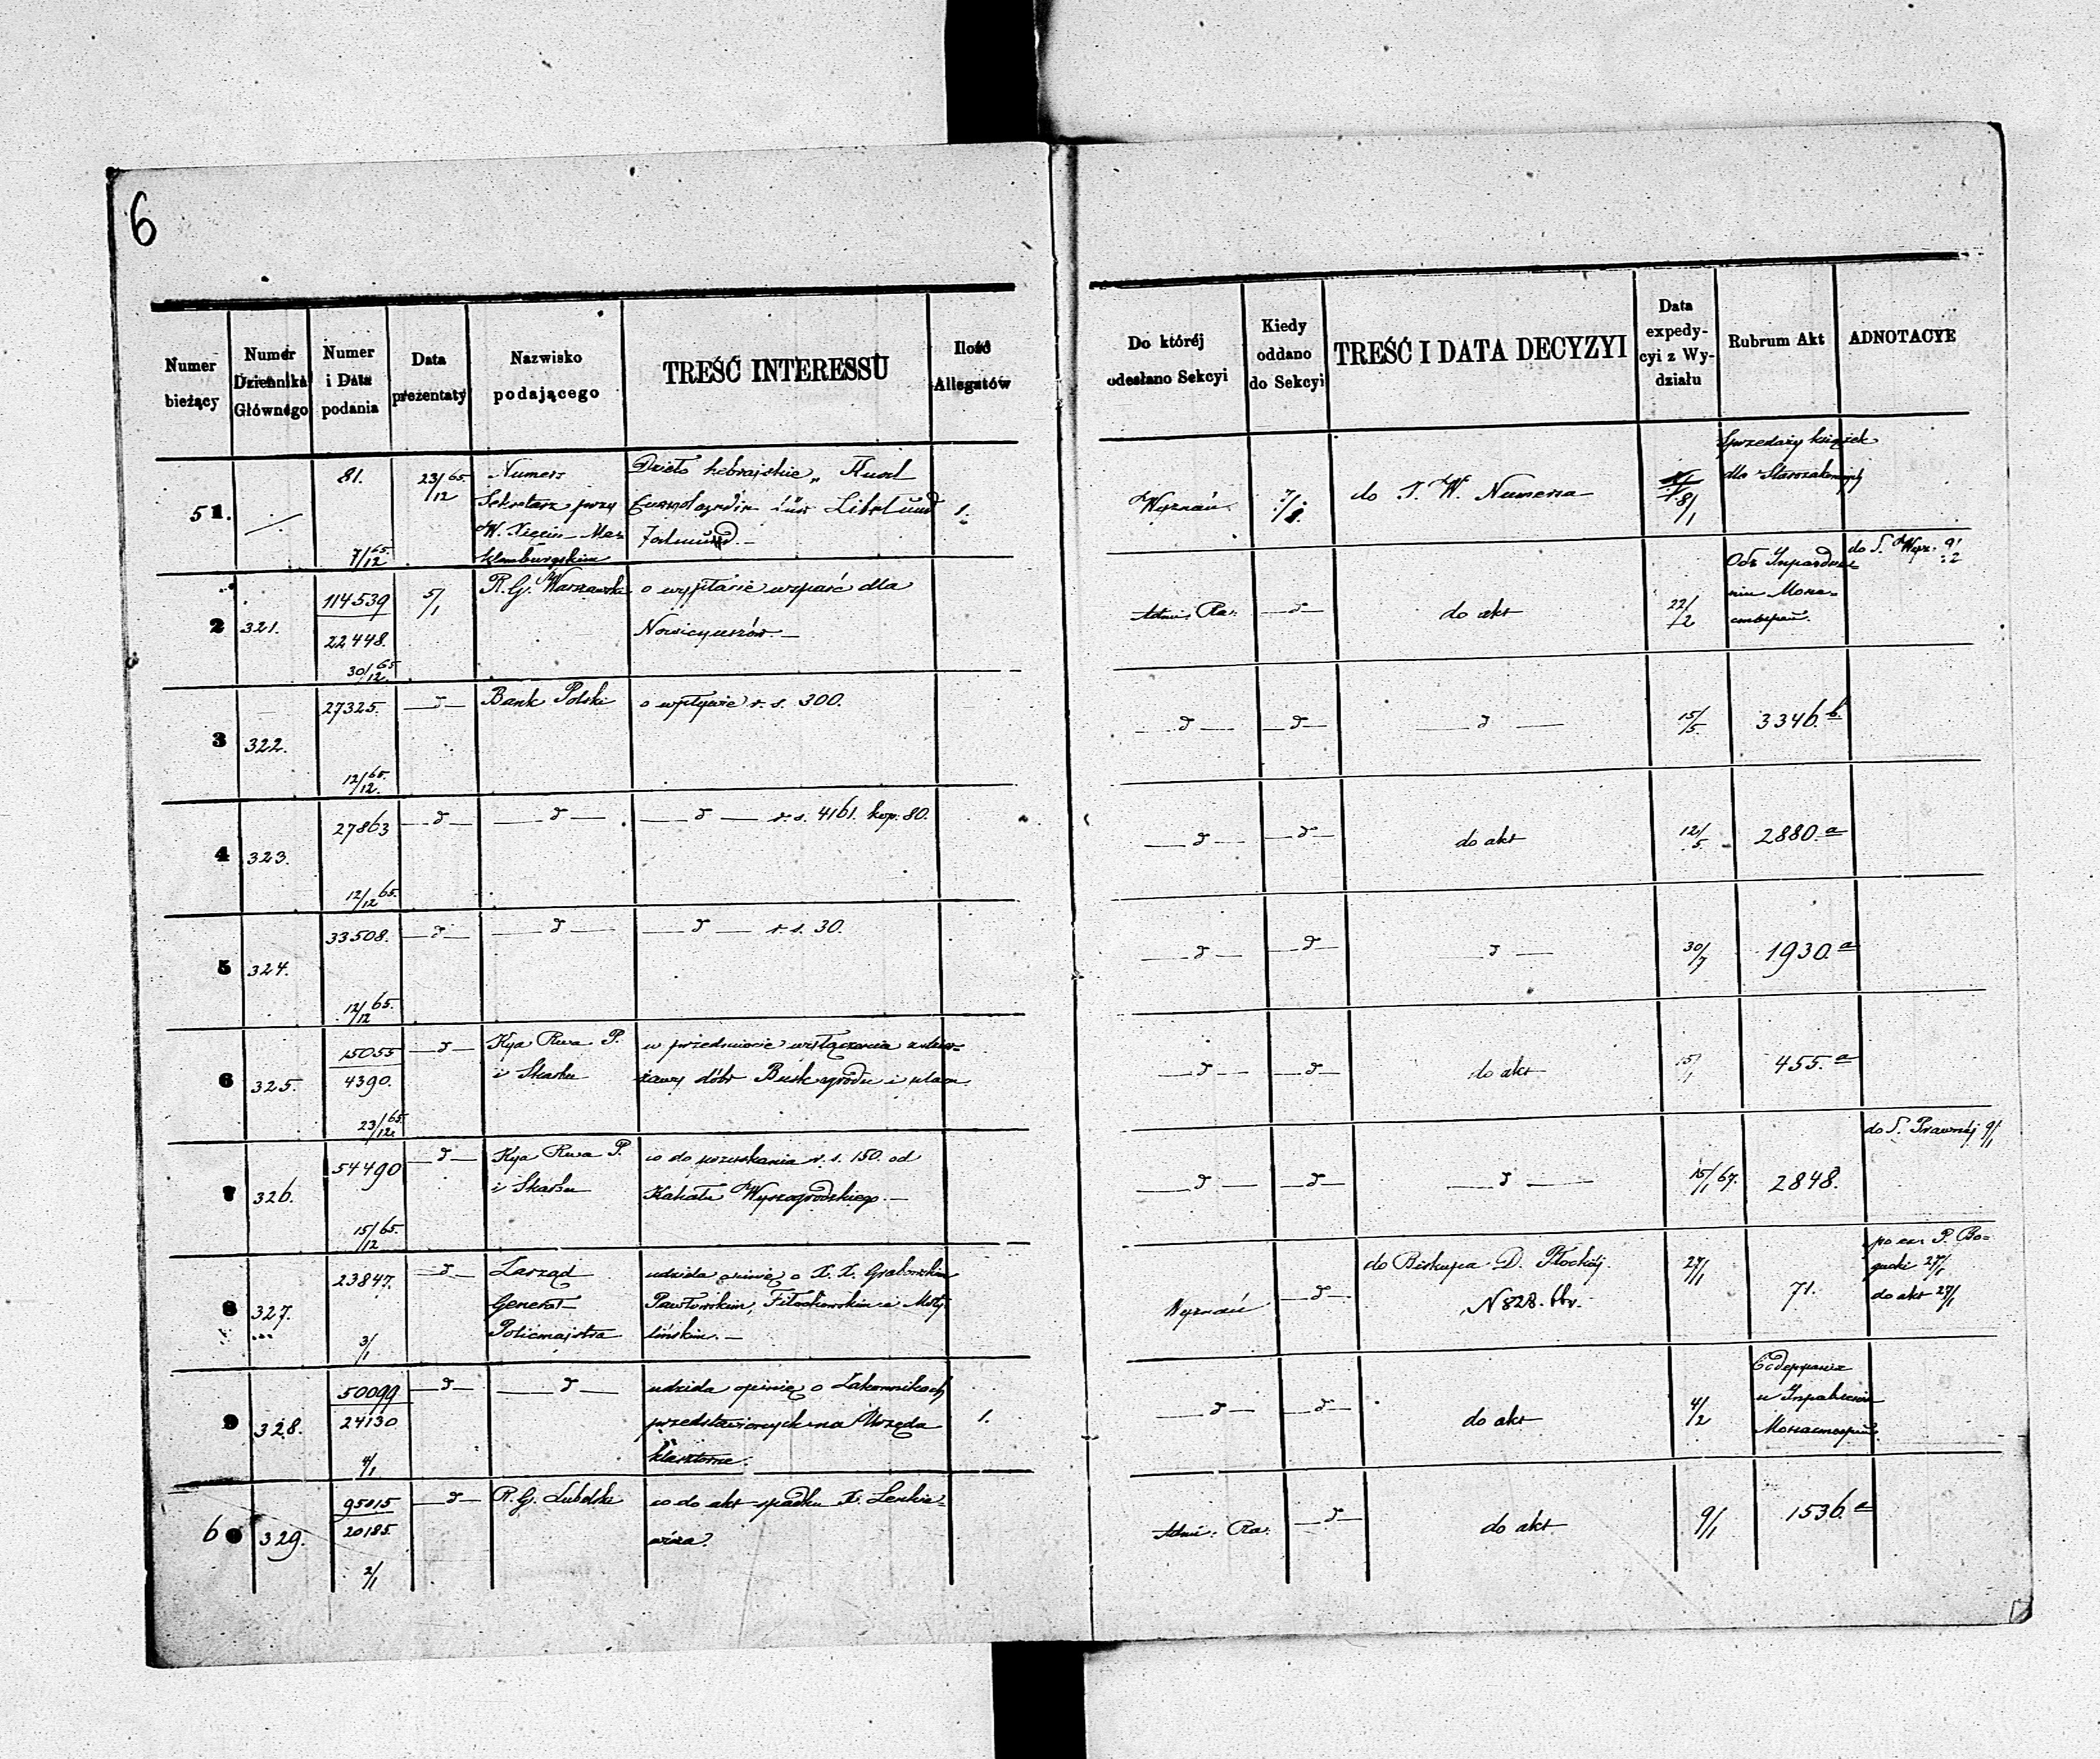 6
Numer bieżący | Numer Dziennika Głównego | Numer i Data podania | Data prezentaty | Nazwisko podającego | TREŚĆ INTERESSU | Ilość Allegatów | Do której odesłano Sekcyi | Kiedy oddano do Sekcyi | TREŚĆ I DATA DECYZYI | Data expedycyi z Wydziału | Rubrum Akt | ADNOTACYE
51. | 81. 7/12 65. | 23/12 65. | Numers Sekretarz przy W. Xięciu Meklemburgskim | Dzieło hebrajskie | 1. | Wyznań | do J. W. Numersa | 8/1 | Sprzedaży książek dla Starozakonnych
2 | 321. | 114539 22448. 30/12 65. | 5/1 | R. G. Warszawski | o wypłacie wsparć dla Nowicyuszów. | —d— | do akt | 22/2 | do S. Wyz.
3 | 322. | 27325. 12/12 65. | —d— | Bank Polski | o wpływie r. s. 300. | —d— | —d— | —d— | 15/5 | 3346. b
4 | 323. | 27863 12/12 65. | —d— | —d— | —d— r. s. 4161. kop. 80. | —d— | —d— | do akt | 12/5 | 2880. a
5 | 324. | 33508. 12/12 65. | —d— | —d— | —d— r. s. 30. | —d— | —d— | —d— | 30/7 | 1930. a
6 | 325. | 15055 4390. 23/12 65. | —d— | Kya Rwa P. i Skarbu | w przedmiocie dóbr | —d— | —d— | do akt | 455. a
7 | 326. | 54490 15/12 65. | —d— | Kya Rwa P. i Skarbu | co do uzyskania r. s. 150. od Kahału Wyszogrodzkiego. | —d— | —d— | —d— | 15/1 67. | 2848. | do S. Prawnéj 9/1
8 | 327. | 23847. 3/1 | —d— | Zarząd Generał Policmajstra | udziela opinię o X. X. Grabowskim Pawłowskim, | Wyznań | —d— | do Biskupa D. Płockiéj N 828. | 27/1 | 71. | do akt 27/1
9 | 328. | 50099 24130 4/1 | —d— | —d— | udziela opinię o Zakonnikach przedstawionych na Urzęda klasztorne. | 1. | —d— | —d— | do akt | 4/2
60 | 329. | 95015 20185 2/1 | —d— | R. G. Lubelski | co do akt spadku X. | —d— | do akt | 9/1 | 1536. a